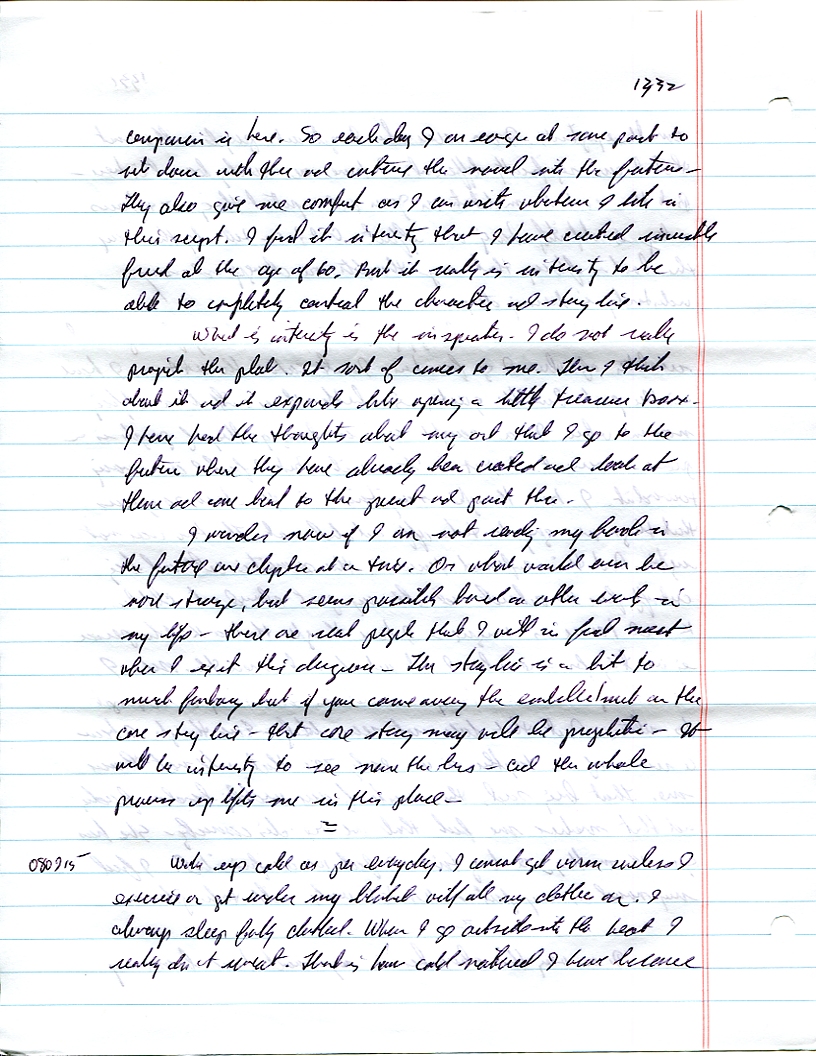 1332
is here. So each day I am eager at some point to
sit down with them and continue the novel into the future -
They also give me comfort as I can write whatever I like in
this script. I find it interesty that I have created invisible
friend at the age of 60. But it really is interesty to be
able to completely control the characters and story line.
What is interesty is the inspiration. I do not really
the plot. It sort of comes to me. Then I think
about it and it expands like opening a little treasure box.
I have had the thoughts about my art that I go to the
future where they have already been created and look at
them and come back to the present and paint them.
I wonder now if I am not reading my book in
the future one chapter at a time. Or what would even be
more strange, but seems possible based on other events in
my life - there are real people that I will in fact meet
when I exit this dungeon - The story line is a bit to
much fantasy but if you carve away the embellishment on the
core story line - that core story may well be prophetic - It
will be interesty to see none the less - and the whole
process uplifts me in this place -
=
080915 Woke up cold as per everyday. I cannot get warm unless I
exercise or get under my blanket with all my clothes on. I
always sleep fully clothed. When I go outside into the heat I
really don't sweat. That is how cold natured I have become